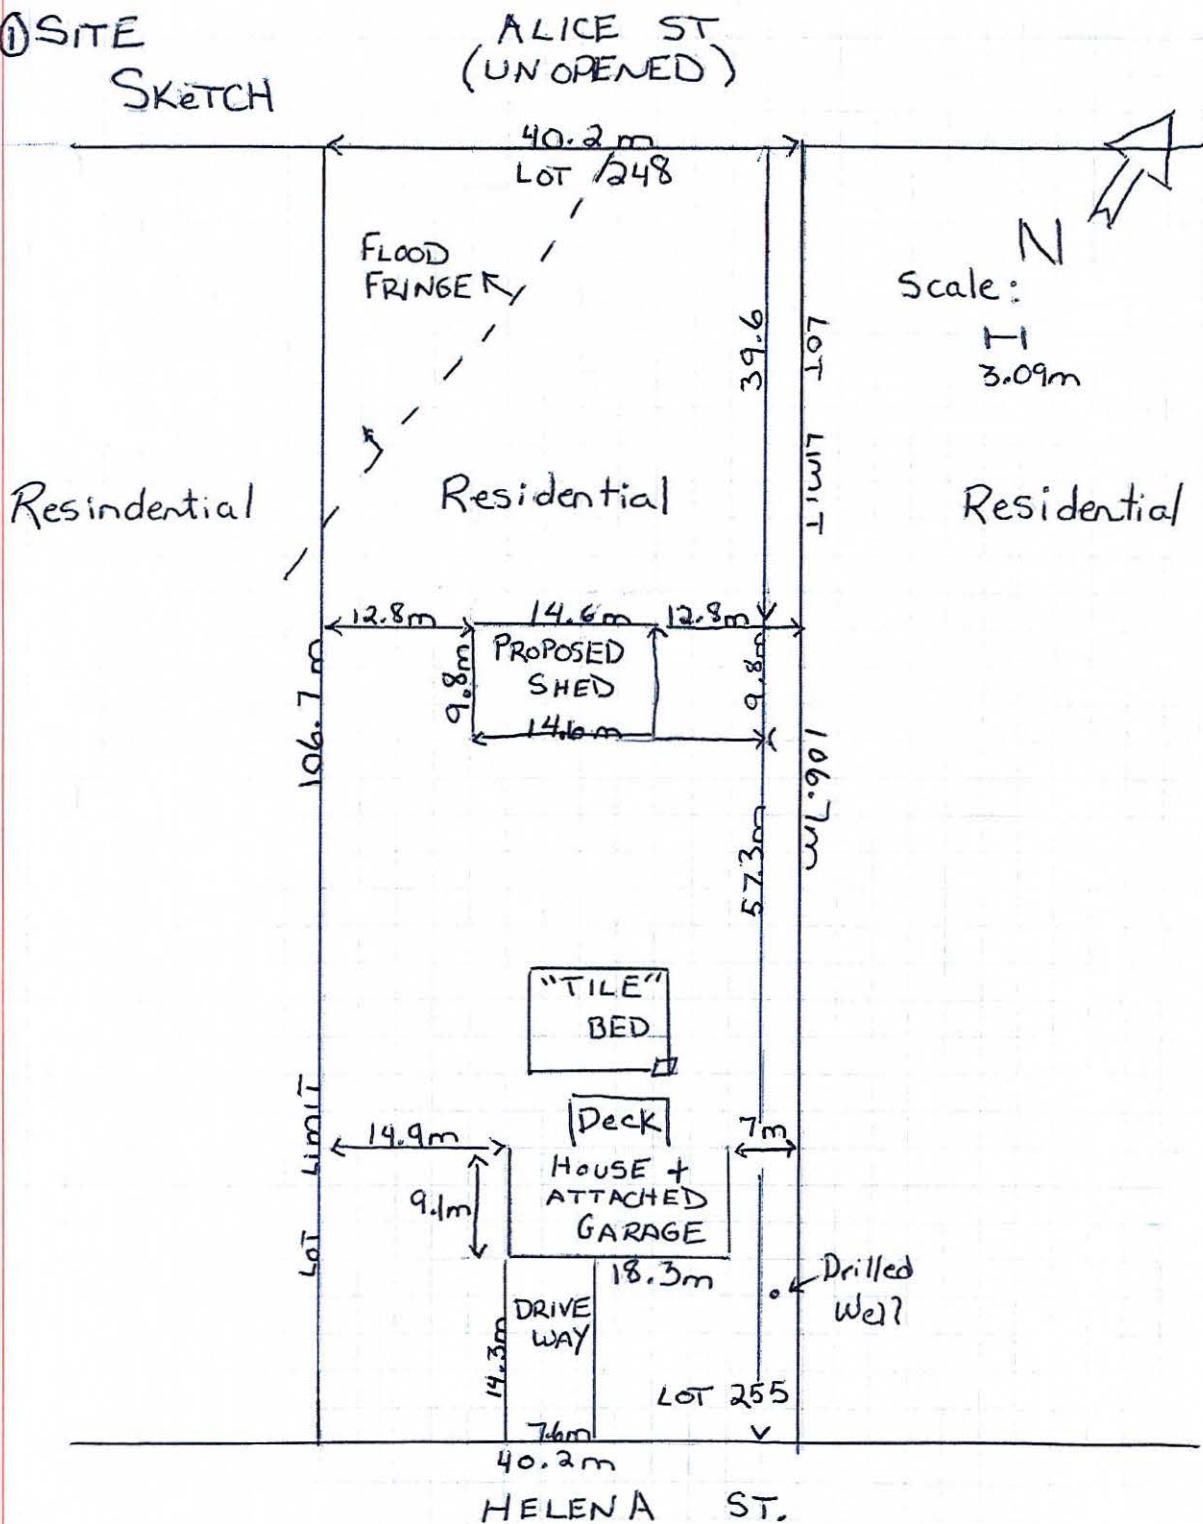 ① SITE
SKETCH
ALICE ST
(UNOPENED)
40.2 m
LOT 248
FLOOD
FRINGE
N
Scale:
3.09m
39.6
LOT LIMIT
Resindential
Residential
Residential
12.8m
14.6m
12.8m
PROPOSED
SHED
9.8m
9.8m
14.6m
106.7 m
106.7m
57.3m
"TILE"
BED
Deck
LOT LIMIT
14.9m
7m
HOUSE +
ATTACHED
GARAGE
9.1m
18.3m
Drilled
Well
DRIVE
WAY
14.3m
LOT 255
7.6m
40.2m
HELENA ST.